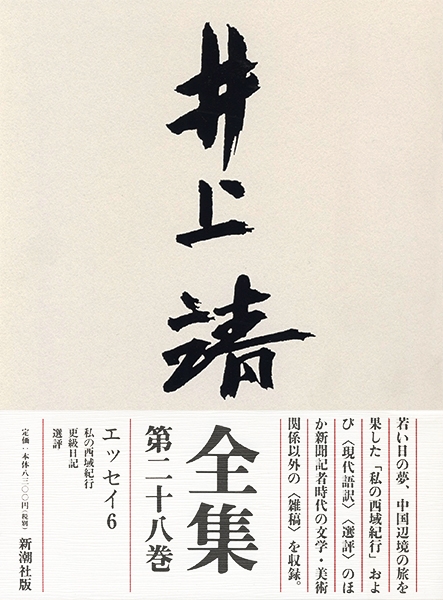 井上靖
全集
第二十八巻
若い日の夢、中国辺境の旅を
果した「私の西域紀行」およ
び〈現代語訳〉〈選評〉のほ
か新聞記者時代の文学・美術
関係以外の〈雑稿〉を収録。
エッセイ6
私の西域紀行
更級日記
選評
定価:本体八三〇〇円(税別)
新潮社版